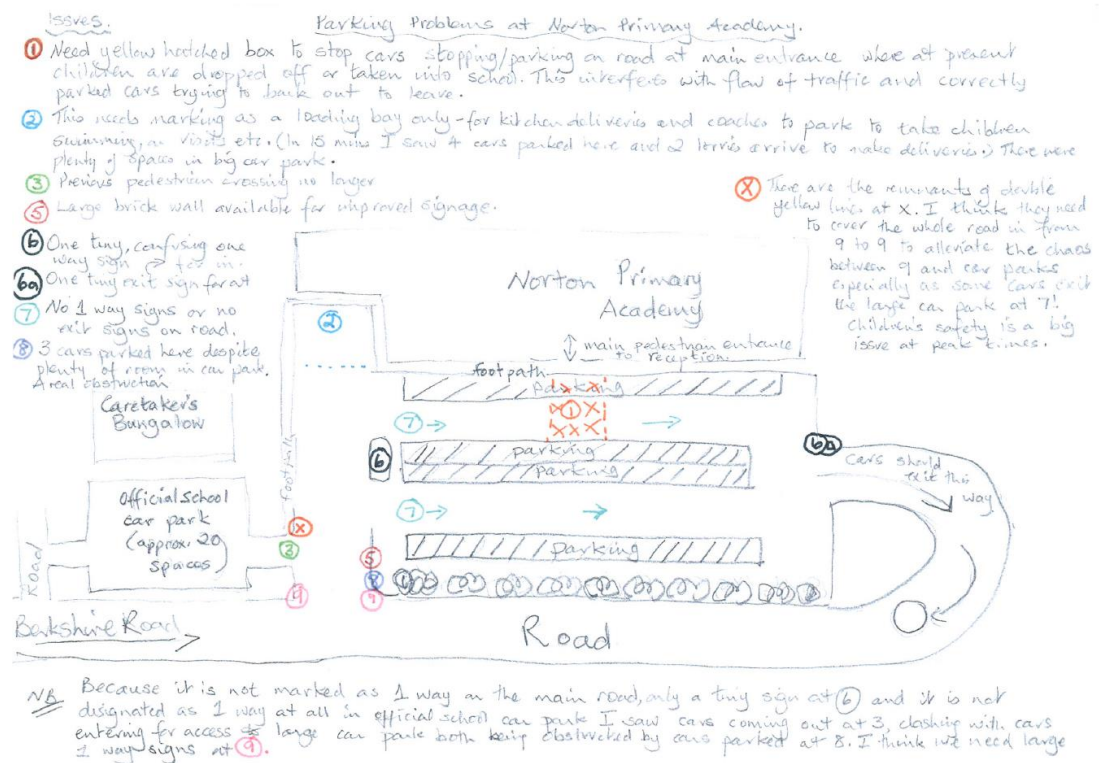 Issues.
Parking Problems at Norton Primary Academy.
① Need yellow hatched box to stop cars stopping/parking on road at main entrance where at present
children are dropped off or taken into school. This interferes with flow of traffic and correctly
parked cars trying to back out to leave.
② This needs marking as a loading bay only - for kitchen deliveries and coaches to park to take children
swimming, on visits etc. (In 15 mins I saw 4 cars parked here and 2 lorries arrive to make deliveries.) There were
plenty of spaces in big car park.
③ Previous pedestrian crossing no longer
⑤ Large brick wall available for improved signage.
⑥ One tiny, confusing one
way sign for in.
6a One tiny exit sign for at
⑦ No 1 way signs or no
exit signs on road.
⑧ 3 cars parked here despite
plenty of room in car park.
A real obstruction
X There are the remnants of double
yellow lines at X. I think they need
to cover the whole road in from
9 to 9 to alleviate the chaos
between 9 and car parks
especially as some cars exit
the large car park at 7!
Children's safety is a big
issue at peak times.
Norton Primary
Academy
②
main pedestrian entrance
to reception.
footpath
parking
X X
X ① X
X X X
⑦
Caretaker's
Bungalow
footpath
⑥
parking
parking
6a
cars should
exit this
way
Official school
car park
(approx. 20
spaces)
⑦
X
③
⑤
parking
Road
⑧
9
9
Berkshire Road
Road
NB Because it is not marked as 1 way on the main road, only a tiny sign at ⑥ and it is not
designated as 1 way at all in official school car park I saw cars coming out at 3, clashing with cars
entering for access to large car park both being obstructed by cars parked at 8. I think we need large
1 way signs at ⑨.